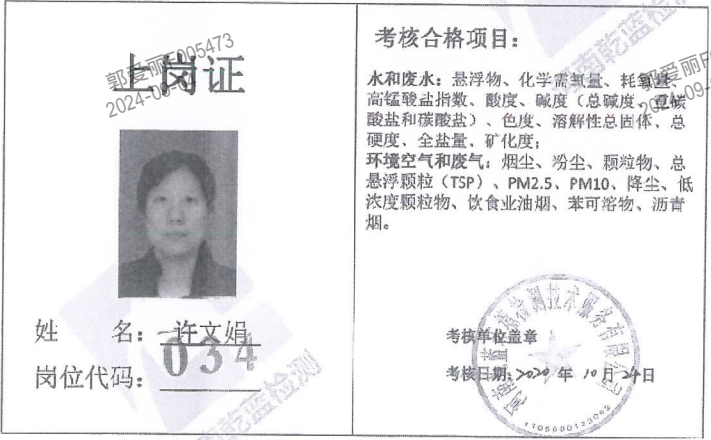 上岗证
郭爱丽F005473
姓 名：许文娟
岗位代码：034
乾蓝检测
考核合格项目：
水和废水：悬浮物、化学需氧量、耗氧量、
高锰酸盐指数、酸度、碱度（总碱度、重碳
酸盐和碳酸盐）、色度、溶解性总固体、总
硬度、全盐量、矿化度；
环境空气和废气：烟尘、粉尘、颗粒物、总
悬浮颗粒（TSP）、PM2.5、PM10、降尘、低
浓度颗粒物、饮食业油烟、苯可溶物、沥青
烟。
考核单位盖章
考核日期：2020年10月24日
河南乾蓝检测技术服务有限公司